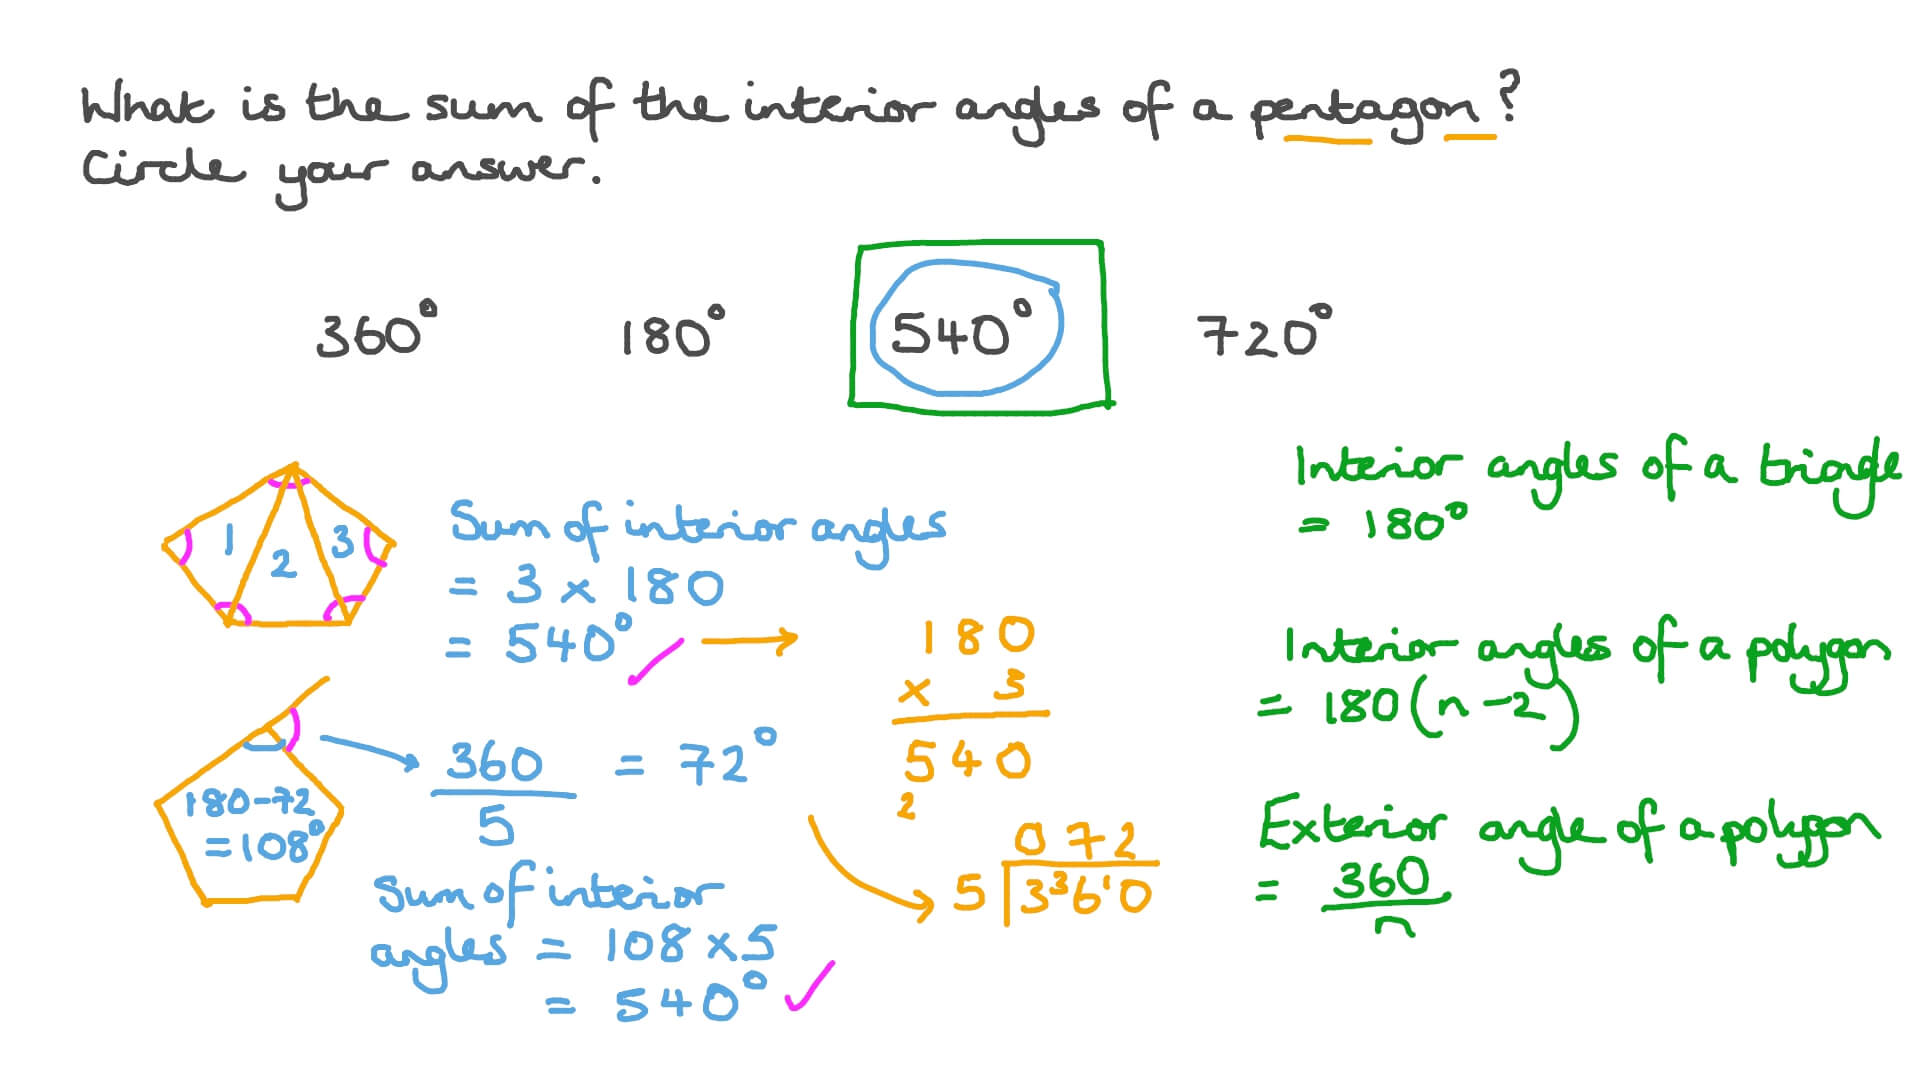 What is the sum of the interior angles of a pentagon?
Circle your answer.
360° 180° 540° 720°
1 2 3
Sum of interior angles
= 3 × 180
= 540°
180
× 3
540
2
180-72
= 108°
360/5 = 72°
Sum of interior
angles = 108 × 5
= 540°
072
5 3³6¹0
Interior angles of a triangle
= 180°
Interior angles of a polygon
= 180(n-2)
Exterior angle of a polygon
= 360/n